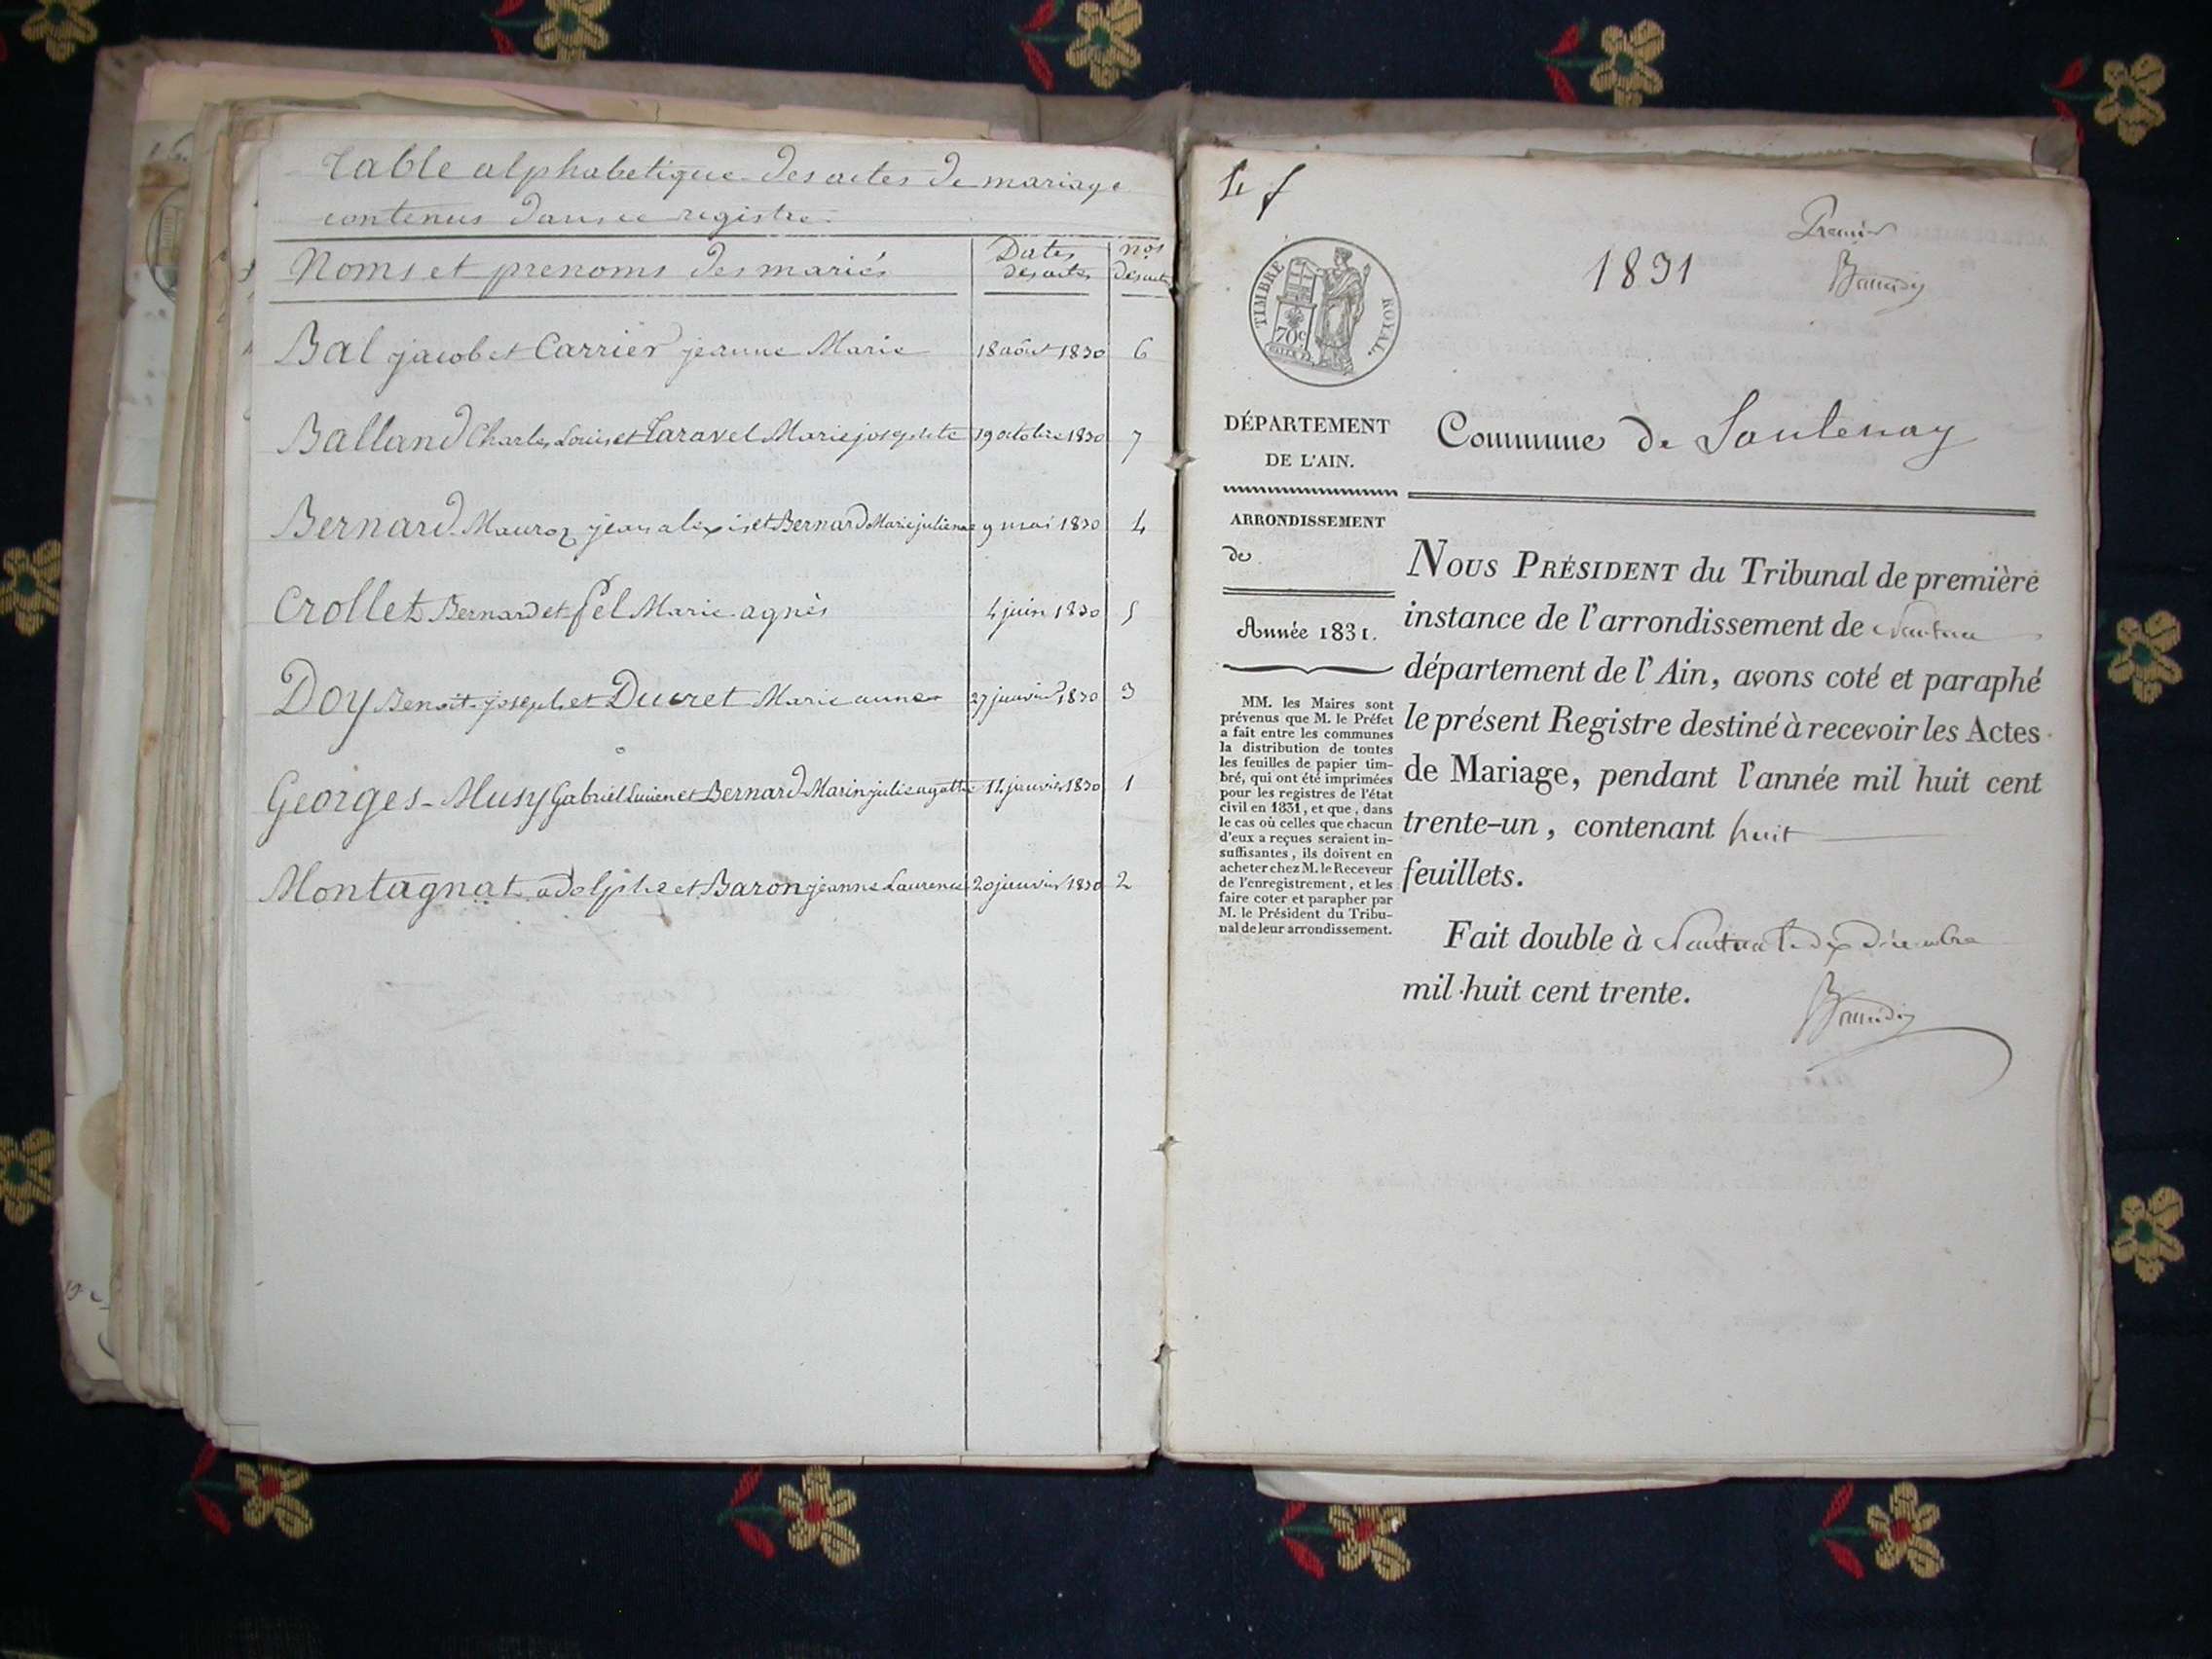 Table alphabetique des actes de mariage
contenus dans ce registre.
Noms et prenoms des mariés Dates des actes nos des actes
Bal jacob et Carrier jeanne Marie 18 août 1830 6
Balland Charles Louis et Taravel Marie josephte 19 octobre 1830 7
Bernard-Mauroz jean alexis et Bernard Marie julienne 9 mai 1830 4
Crollet Bernard et Pel Marie agnès 4 juin 1830 5
Doy Benoit joseph et Ducret Marie anne 27 janvier 1830 3
Georges-Musy Gabriel Lucien et Bernard Marin julie agathe 14 janvier 1830 1
Montagnat adolphe et Baron jeanne Laurence 20 janvier 1830 2
Premier
1831
TIMBRE ROYAL.
70c
DÉPARTEMENT
DE L'AIN.
Commune de
ARRONDISSEMENT
de
Année 1831.
MM. les Maires sont
prévenus que M. le Préfet
a fait entre les communes
la distribution de toutes
les feuilles de papier tim-
bré, qui ont été imprimées
pour les registres de l'état
civil en 1831, et que, dans
le cas où celles que chacun
d'eux a reçues seraient in-
suffisantes, ils doivent en
acheter chez M. le Receveur
de l'enregistrement, et les
faire coter et parapher par
M. le Président du Tribu-
nal de leur arrondissement.
NOUS PRÉSIDENT du Tribunal de première
instance de l'arrondissement de Nantua
département de l'Ain, avons coté et paraphé
le présent Registre destiné à recevoir les Actes
de Mariage, pendant l'année mil huit cent
trente-un, contenant huit
feuillets.
Fait double à Nantua le dix décembre
mil huit cent trente.